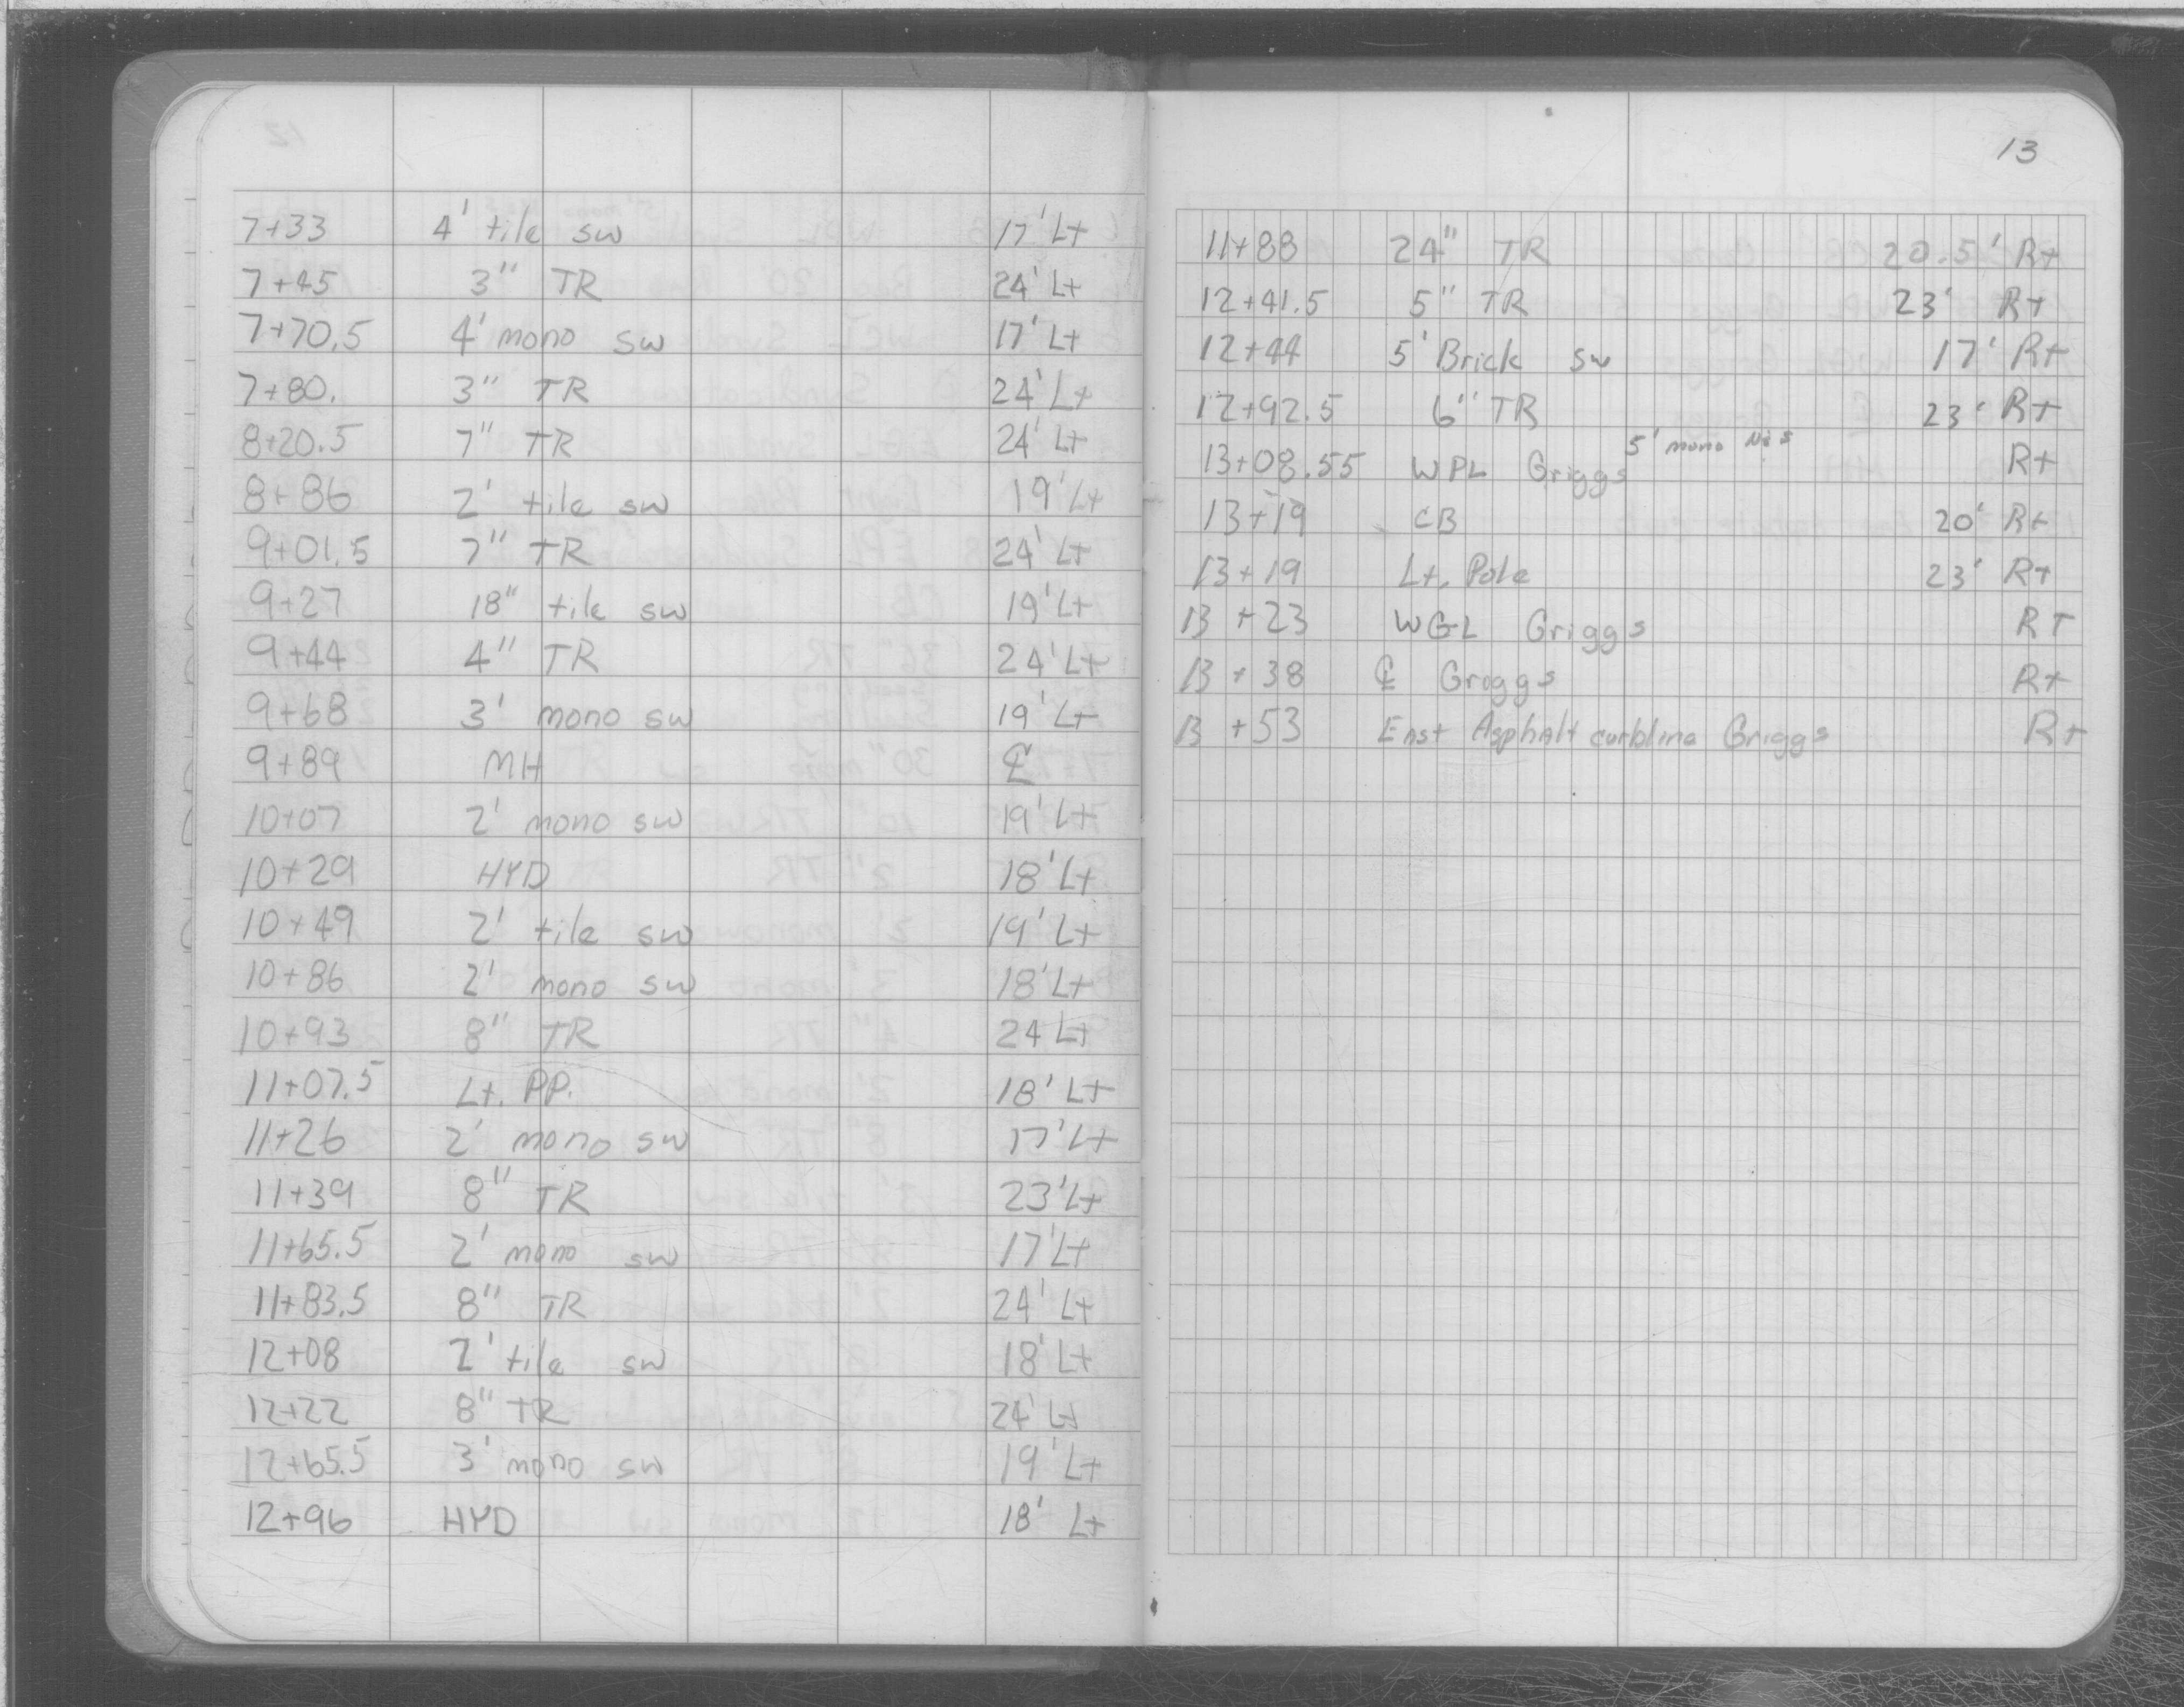 7+33 4' tile sw 17' Lt
7+45 3" TR 24' Lt
7+70.5 4' mono sw 17' Lt
7+80. 3" TR 24' Lt
8+20.5 7" TR 24' Lt
8+86 2' tile sw 19' Lt
9+01.5 7" TR 24' Lt
9+27 18" tile sw 19' Lt
9+44 4" TR 24' Lt
9+68 3' mono sw 19' Lt
9+89 MH ℄
10+07 2' mono sw 19' Lt
10+29 HYD 18' Lt
10+49 2' tile sw 19' Lt
10+86 2' mono sw 18' Lt
10+93 8" TR 24 Lt
11+07.5 Lt. PP. 18' Lt
11+26 2' mono sw 17' Lt
11+39 8" TR 23' Lt
11+65.5 2' mono sw 17' Lt
11+83.5 8" TR 24' Lt
12+08 2' tile sw 18' Lt
12+22 8" TR 24' Lt
12+65.5 3' mono sw 19' Lt
12+96 HYD 18' Lt
13
11+88 24" TR 20.5' Rt
12+41.5 5" TR 23' Rt
12+44 5' Brick sw 17' Rt
12+92.5 6" TR 23' Rt
13+08.55 WPL Griggs 5' mono N&S Rt
13+19 CB 20' Rt
13+19 Lt. Pole 23' Rt
13+23 WGL Griggs RT
13+38 ℄ Groggs Rt
13+53 East Asphalt curbline Griggs Rt